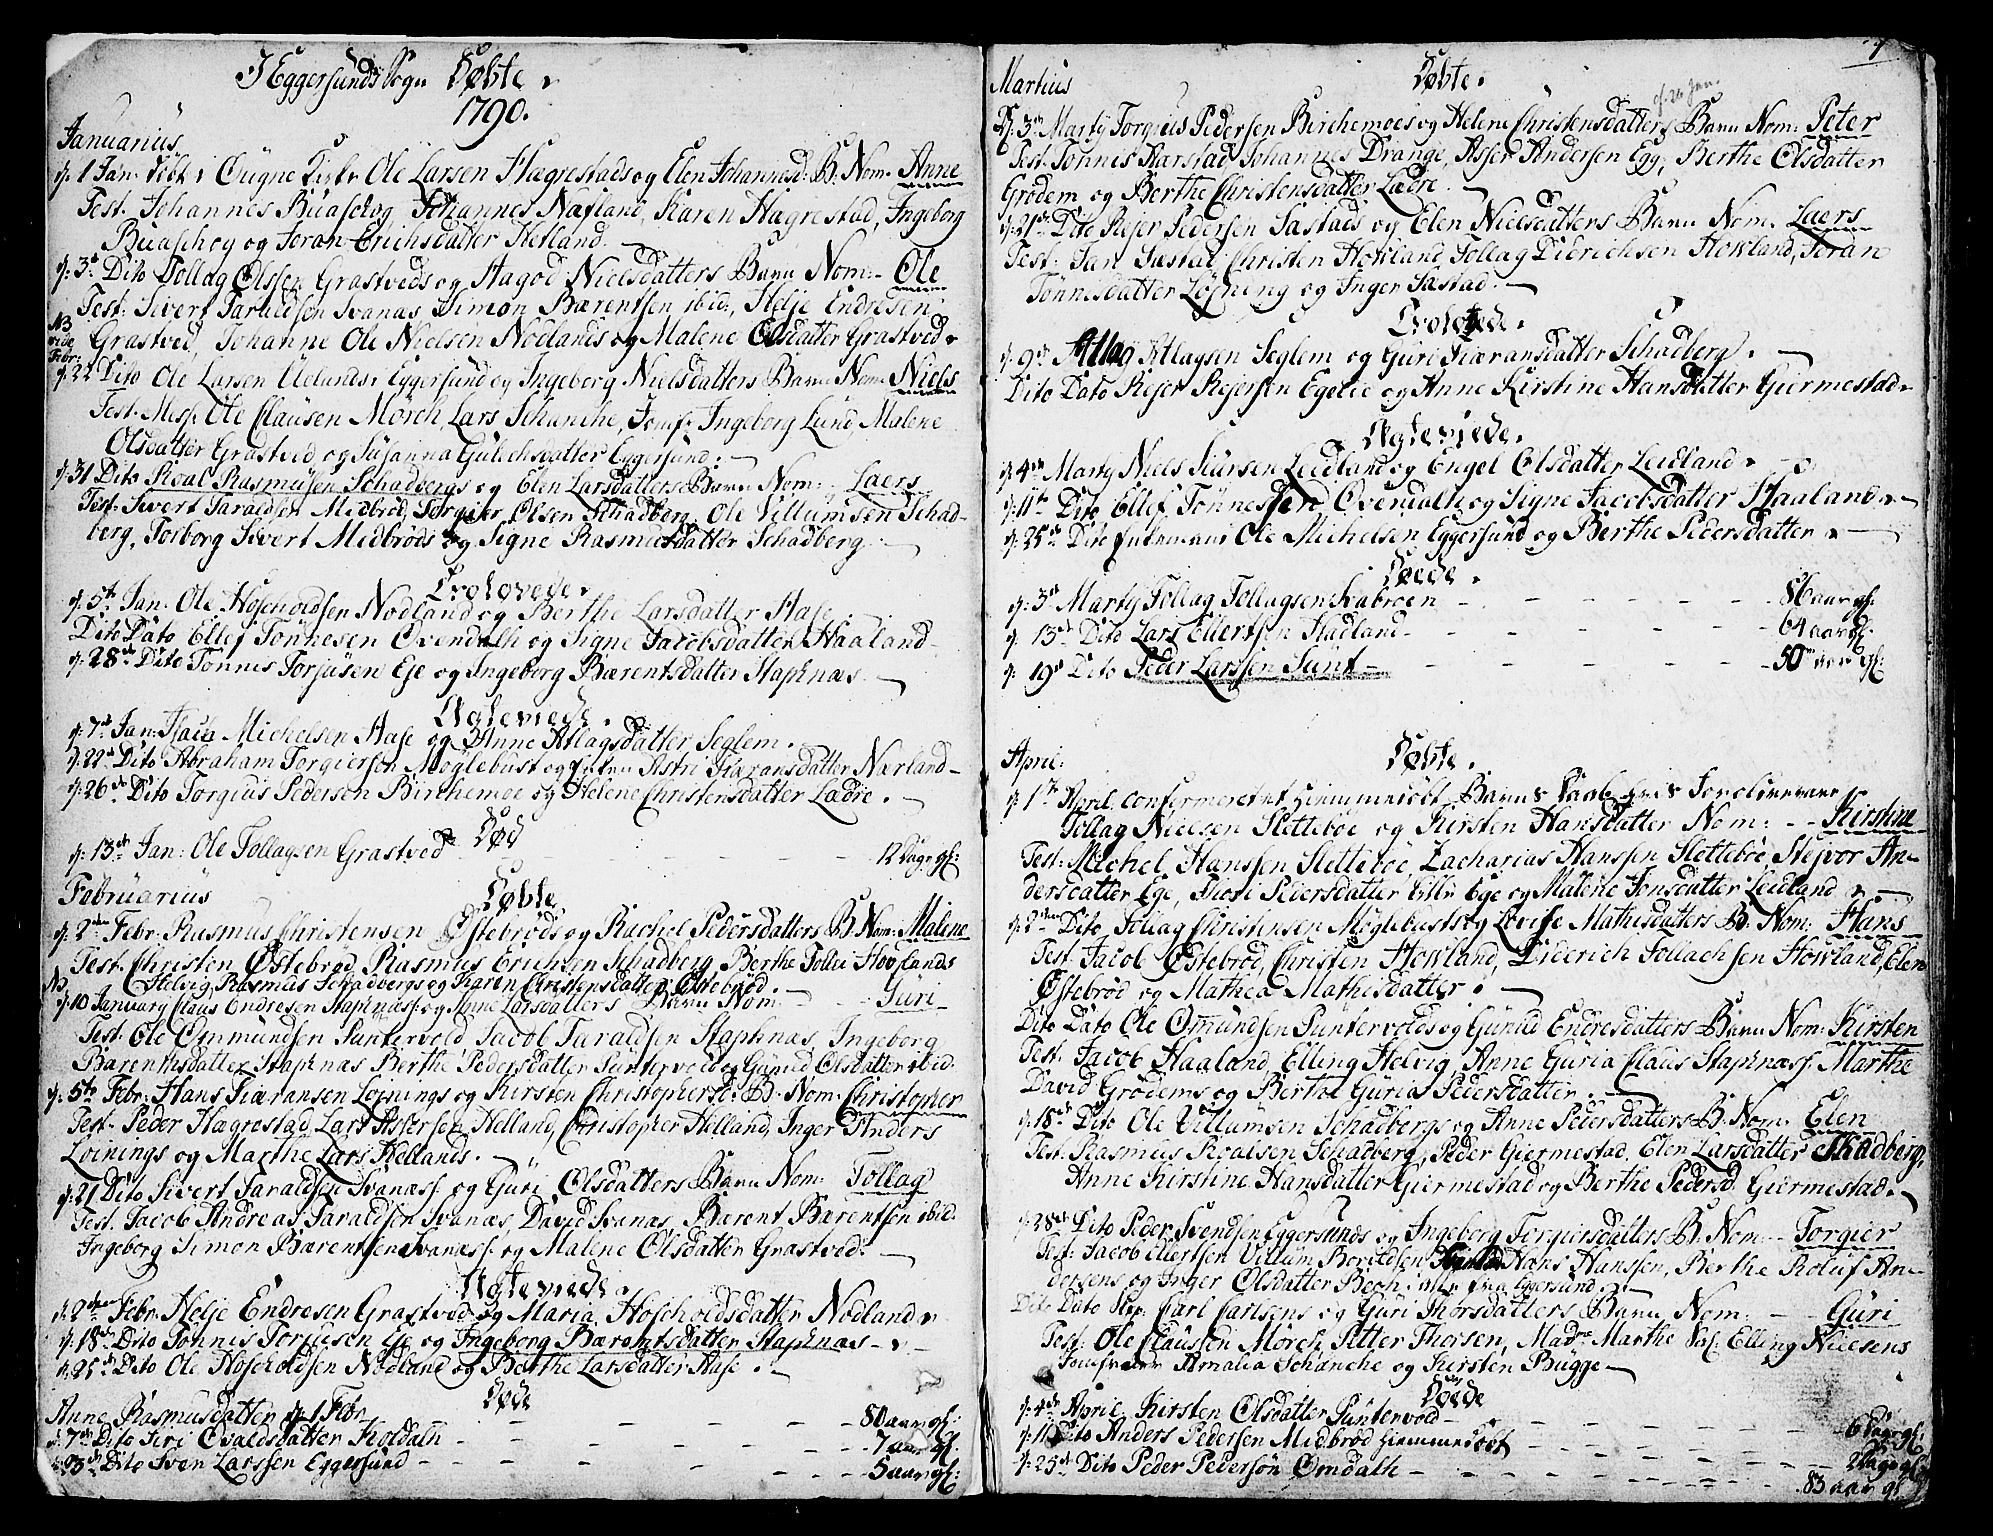 I Eggersunds Sogn Døbte.
1790.
Januarius
d: 1 Jan: Døbt i Ougne Kirke Ole Larsen Hægrestads og Elen Johannesd: B: Nom: Anne
Test. Johannes Buaschog, Johannes Næsland, Karen Hægrestad, Ingeborg
Buaschog og Joran Erichsdatter Hetland.
d: 3d Dito Tollag Olssen Grastveds og Aagod Nielsdatters Barn Nom: Ole
Test: Sivert Taraldsen Svanæs, Simon Bærentsen ibid:, Helje Endresen
NB
vide
Febr:
Grastved, Johanne Ole Nielsen Nodlands og Malene Olsdatter Grastved.
d: 22 Dito Ole Larsen Uelands i Eggersund og Ingeborg Nielsdatters Barn Nom: Niels
Test: Ole Clausen Mörch, Lars Schanche, Jomfr: Ingeborg Lund, Malene
Olsdatter Grastved og Susanna Gulichsdatter Eggersund.
d: 31 Dito Roal Rasmusen Schadbergs og Elen Larsdatters Barn Nom: Laers
Test. Sivert Taraldsen Midbröd, Torgier Olsen Schadberg, Ole Villumsen Schad-
berg, Torborg Sivert Midbröds og Signe Rasmusdatter Schadberg.
Trolovede.
d: 5te Jan: Ole Hoscholdsen Nodland og Berthe Larsdatter Aase.
Dito Dato Ellef Tönnesen Ovendalh og Signe Jacobsdatter Haaland
d: 28de Dito Tönnis Torjusen Eje og Ingeborg Bærentsdatter Stapknæs.
Ægteviede.
d: 7de Jan: Isach Michelsen Aase og Anne Atlagsdatter Seglem.
d: 22de Dito Abraham Torgiersen Möglebust og Astri Siæransdatter Nærland
d: 26de Dito Torgius Pedersen Birchemoe og Helene Christensdatter Lædre.
Død
d: 13de Jan: Ole Tollagsen Grastved 12 Dage gl:
Februarius
Døbte
d: 2den Febr: Rasmus Christensen Östebröds og Rachel Pedersdatters B: Nom: Malene
Test. Christen Östebröd, Rasmus Erichsen Schadberg, Berthe Tollev Hovlands
Helvig Rasmus Schadbergs og Karen Christensdatter Östebröd.
NB
d: 10 January Claus Endresen Stapknæs: og Anne Larsdatters Barn Nom: Guri
Test. Ole Ommundsen Puntervold, Jacob Taraldsen Stapknæs, Ingeborg
Barentsdatter Stapknæs, Berthe Pedersdatter Puntervold og Gunild Olsdatter ibid.
d: 5te Febr: Hans Siæransen Löjnings og Kirsten Christophersd: B: Nom: Christopher
Test. Peder Hægrestad, Lars Assersen Helland, Christopher Helland, Inger Anders
Löinings og Marthe Lars Hellands.
d: 21 Dito Sivert Taraldsen Svanæs: og Guri Olsdatters Barn Nom: Tollag
Test. Jacob Andreas Taraldsen Svanæs, David Svanæs, Bærent Bærentsen ibid.
Ingeborg Simon Bærentsen Svanæs: og Malene Olsdatter Grastved.
Ægteviede.
d: 2den Febr. Helje Endresen Grastved og Maria Hoscholdsdatter Nodland.
d: 18de Dito Tönnis Torjusen Eje og Ingeborg Bærentsdatter Stapknæs
d: 25de Dito Ole Hoscholdsen Nodland og Berthe Larsdatter Aase.
Døde
Anne Rasmusdatter d: 1 Febr 80 aar gl:
d: 7de Dito Siri Ovaldsdatter Koldalh 7 aar gl:
d: 23de Dito Sven Larssen Eggersund 5 aar gl:
7
Martius
Døbte.
cf. 26 Jan.
d: 3de Marty Torgius Pedersen Birchemoes og Helene Christensdatters Barn Nom: Peter
Test. Tonnis Aarstad, Johannes Drange, Asser Andersen Egg, Berthe Olsdatter
Grödem og Berthe Christensdatter Lædre.
d: 21de Dito Rejer Pedersen Sastads og Elen Nielsdatters Barn Nom: Laers
Test: Jan Sastad, Christen Howland, Tollag Didrichsen Howland, Joran
Tönnisdatter Löjning og Inger Sastad.
Trolovede.
d: 9de Atlag Atlagsen Seglem og Guri Siæransdatter Schadberg.
Dito Dato Rejer Rejersen Egelie og Anne Kirstine Hansdatter Giermestad
Ægteviede.
d: 4de Marty Niels Siursen Leidland og Engel Olsdatter Leidland.
d: 11te Dito Ellef Tönnessen Ovendalh og Signe Jacobsdatter Haaland
d: 25de Dito Ole Michelsen Eggersund og Berthe Pedersdatter
Døde.
d: 3de Marty Tollag Tollagsen Svabroen 86 aar gl:
d: 13de Dito Lars Ellertsen Hadland 64 aar gl:
d: 19de Dito Peder Larssen Sunt 50 aar gl:
April:
Døbte.
d: 1te April confermeret et hiemmedöbt Barns Daab, hvis Forældre vare
Tollag Nielsen Slettebøe og Kirsten Hansdatter Nom: Kirstine
Test. Michel Hanssen Slettebøe, Zacharias Hanssen Slettebøe, Stejvor An-
dersdatter Ege, Thori Pedersdatter Lille Ege og Malene Jonsdatter Leidland.
d: 2den Dito, Tollag Christensen Möglebusts og Lovise Mathisdatters B: Nom: Hans
Test. Jacob Östebröd, Christen Howland, Diderich Tollachsen Howland, Elen
Östebröd og Mathea Mathisdatter.
Dito Dato Ole Omundsen Puntervolds og Gunild Endresdatters Barn Nom: Kirsten
Test. Jacob Haaland, Elling Helvig, Anne Guria Claus Stapknæs: Marthe
David Grödems og Berthe Guria Pedersdatter.
d: 18de Dito Ole Villumsen Schadbergs og Anne Pedersdatters B: Nom: Elen
Test: Rasmus Roalsen Schadberg, Peder Giermestad, Elen Larsdatter Skadberg,
Anne Kirstine Hansdatter Giermestad og Berthe Pedersd: Giermestad.
d: 28de Dito Peder Svendsen Eggersunds og Ingeborg Torgiersdatters B: Nom: Torgier
Test: Jacob Ellertsen, Villum Boroldsen, Hans Hanssen, Berthe Roluf An-
dersens og Inger Olsdatter Bech, alle fra Eggersund.
Dito Dato Carl Carlsens og Guri Thorsdatters Barn Nom: Guri
Test: Ole Claussen Mörch, Petter Thorsen, Mad: Marthe Sal: Elling Nielsens
Jomfruer Amalia Schanche og Kirsten Bugge
Døde
d: 4de April, Kirsten Olsdatter Puntervold 6 Dage gl:
d: 11 Dito Anders Pedersen Midbröd hiemmedöbt 2 Dage gl:
d: 25de Dito Peder Pedersön Omdalh 83 aar gl: